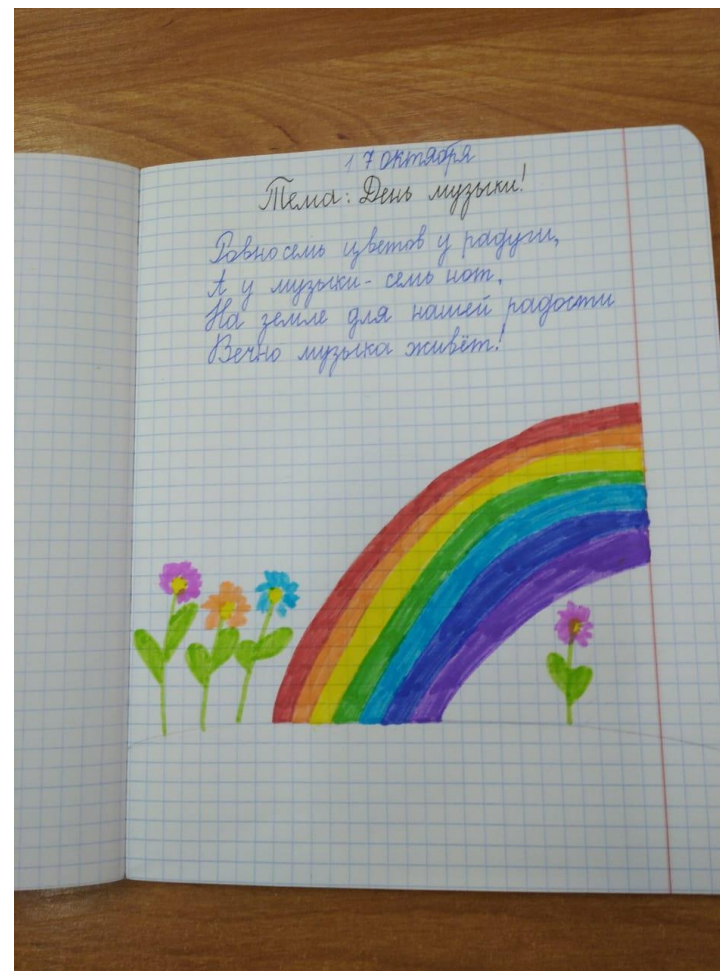 17 октября
Тема: День музыки!
Равно семь цветов у радуги,
А у музыки - семь нот,
На земле для нашей радости
Вечно музыка живёт!